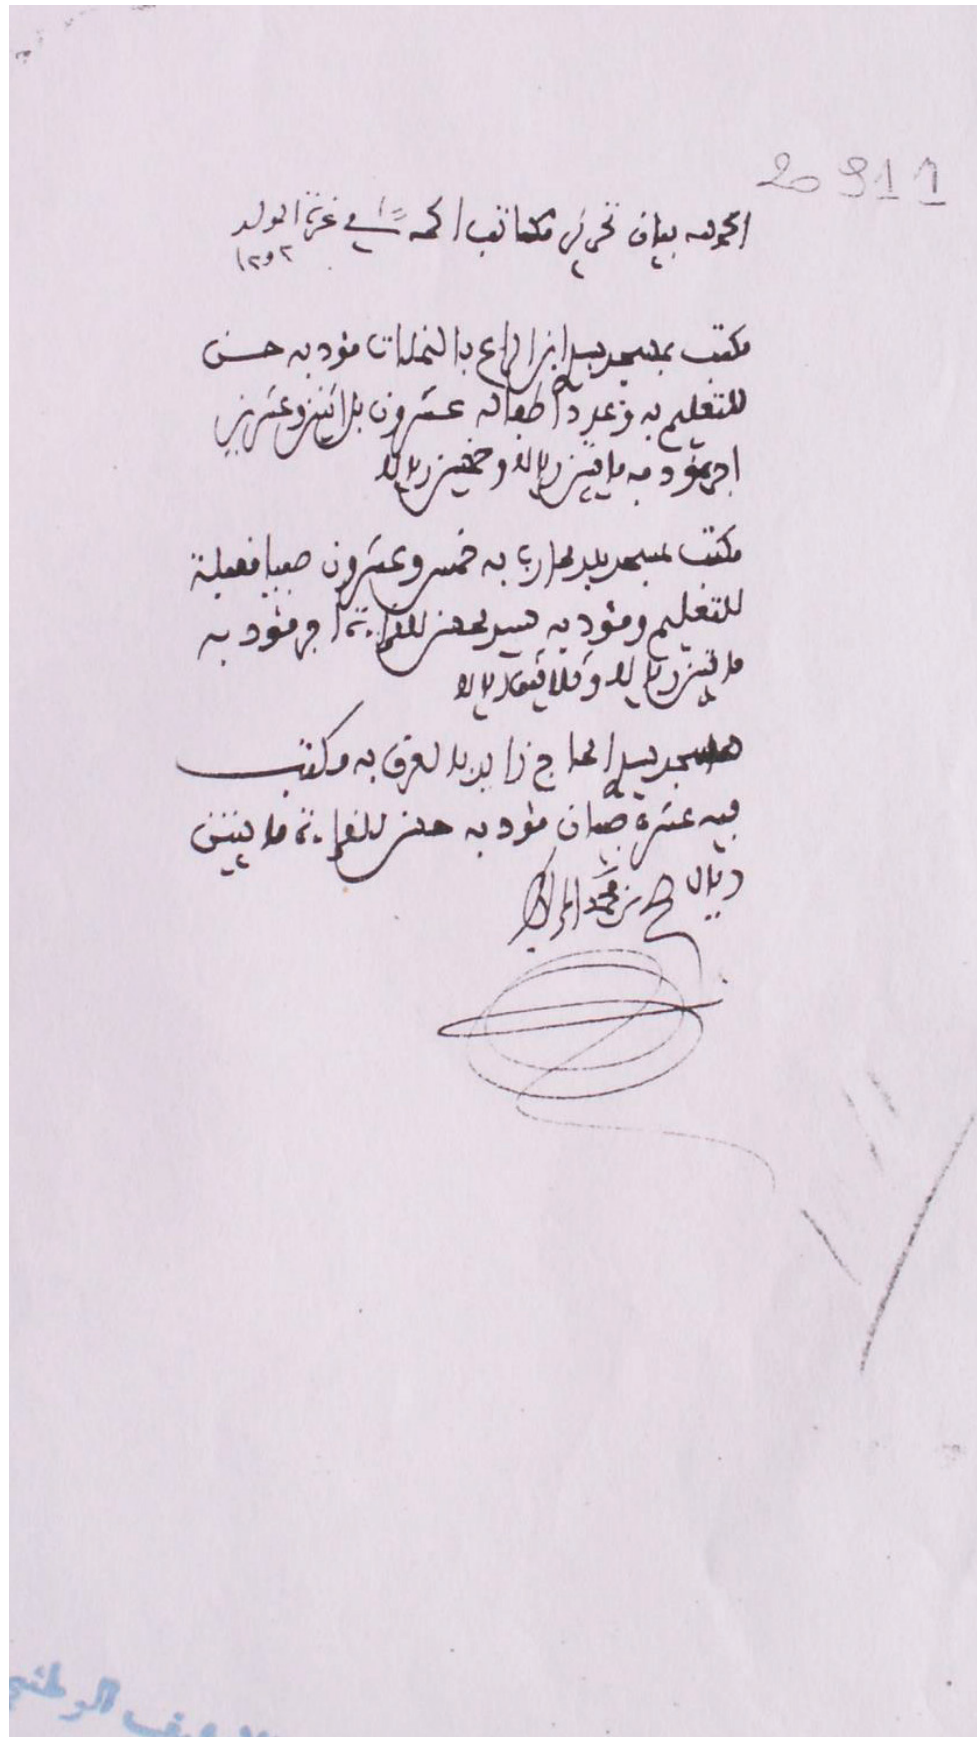 20911
الحمد لله بيان تحرير مكاتب الحمة في غرة المولد
مكتب بمسجد سيدي ابن الراع بالنملات مؤدبه حسن
للتعليم به وعدد أطفاله عشرون بل اثنين وعشرين
اجر مؤدبه مايتين ريالا وخمسين ريالا
مكتب بمسجد به خمس وعشرون صبيا قبيلة
للتعليم ومؤدبه حسن للقراءة اجر مؤدبه
مايتين ريالا وثلاثين ريالا
مسجد سيدي الحاج زايد بالعرق به مكتب
فيه عشرة صبيان مؤدبه حسن للقراءة مايتين
ريال بن محمد
الارشيف الوطني